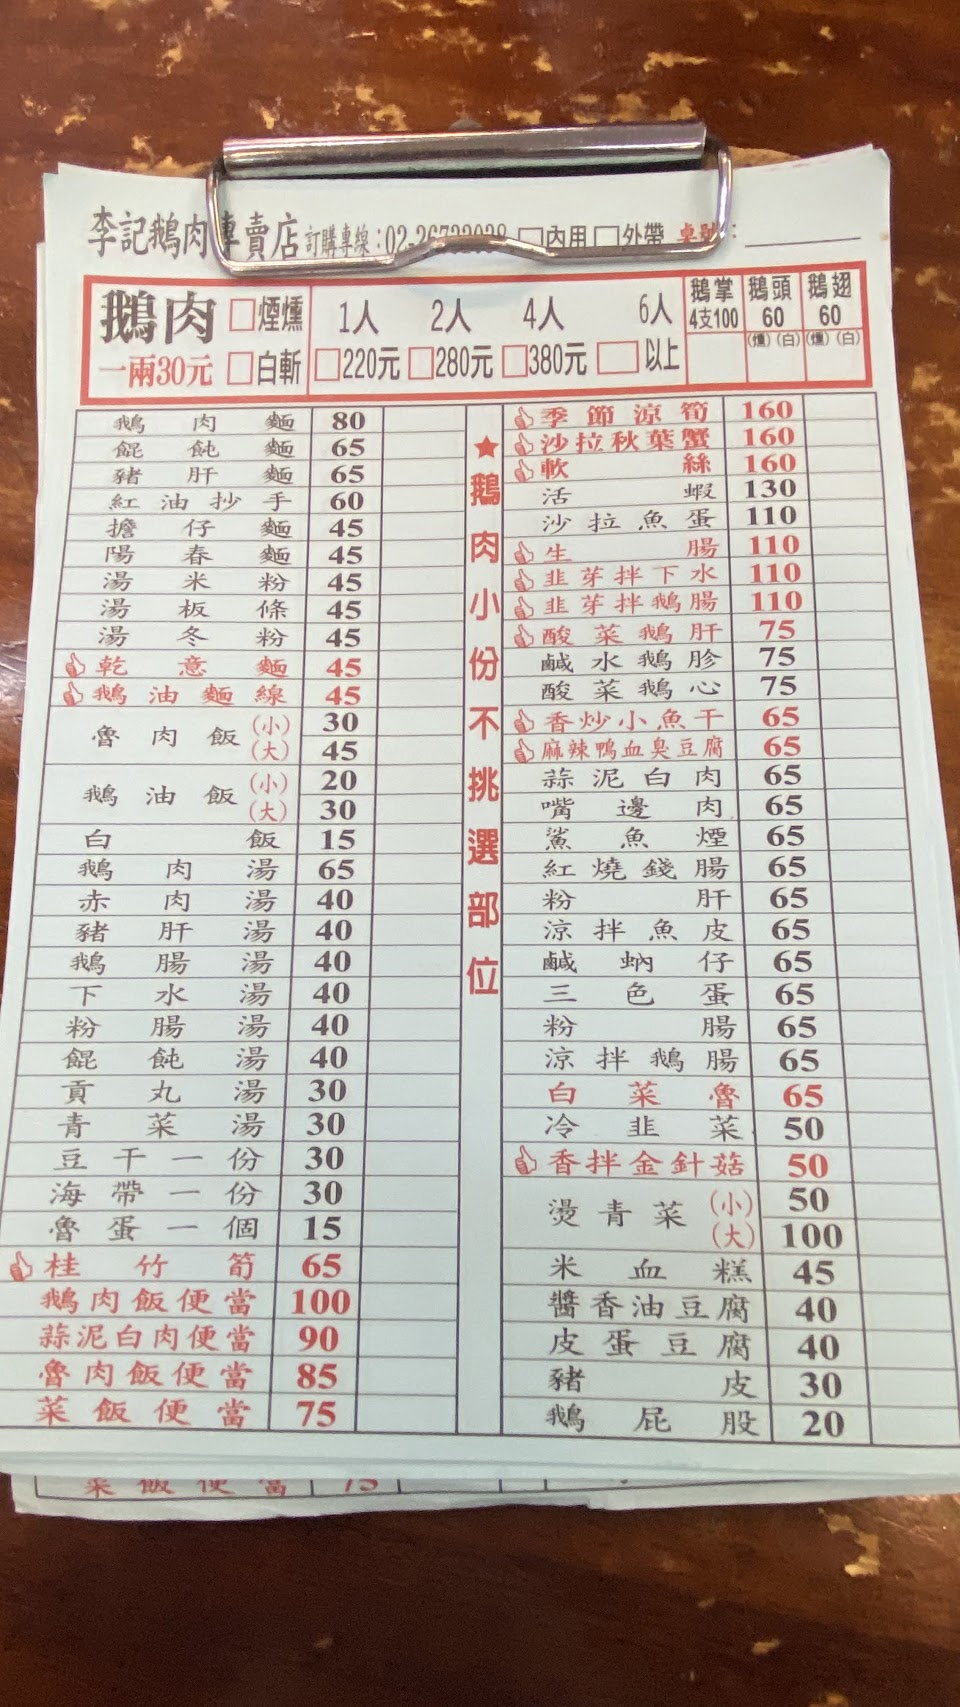 李記鵝肉專賣店 訂購專線:02-26732028 □內用 □外帶 桌號:
鵝肉 □煙燻 1人 2人 4人 6人 鵝掌 鵝頭 鵝翅
一兩30元 □白斬 □220元 □280元 □380元 □以上 4支100 60 60
(燻)(白) (燻)(白)
★鵝肉小份不挑選部位
鵝肉麵 80
餛飩麵 65
豬肝麵 65
紅油抄手 60
擔仔麵 45
陽春麵 45
湯米粉 45
湯板條 45
湯冬粉 45
乾意麵 45
鵝油麵線 45
魯肉飯 (小) 30
(大) 45
鵝油飯 (小) 20
(大) 30
白飯 15
鵝肉湯 65
赤肉湯 40
豬肝湯 40
鵝腸湯 40
下水湯 40
粉腸湯 40
餛飩湯 40
貢丸湯 30
青菜湯 30
豆干一份 30
海帶一份 30
魯蛋一個 15
桂竹筍 65
鵝肉飯便當 100
蒜泥白肉便當 90
魯肉飯便當 85
菜飯便當 75
季節涼筍 160
沙拉秋葉蟹 160
軟絲 160
活蝦 130
沙拉魚蛋 110
生腸 110
韭芽拌下水 110
韭芽拌鵝腸 110
酸菜鵝肝 75
鹹水鵝胗 75
酸菜鵝心 75
香炒小魚干 65
麻辣鴨血臭豆腐 65
蒜泥白肉 65
嘴邊肉 65
鯊魚煙 65
紅燒錢腸 65
粉肝 65
涼拌魚皮 65
鹹蚋仔 65
三色蛋 65
粉腸 65
涼拌鵝腸 65
白菜魯 65
冷韭菜 50
香拌金針菇 50
燙青菜 (小) 50
(大) 100
米血糕 45
醬香油豆腐 40
皮蛋豆腐 40
豬皮 30
鵝屁股 20
菜飯便當 75